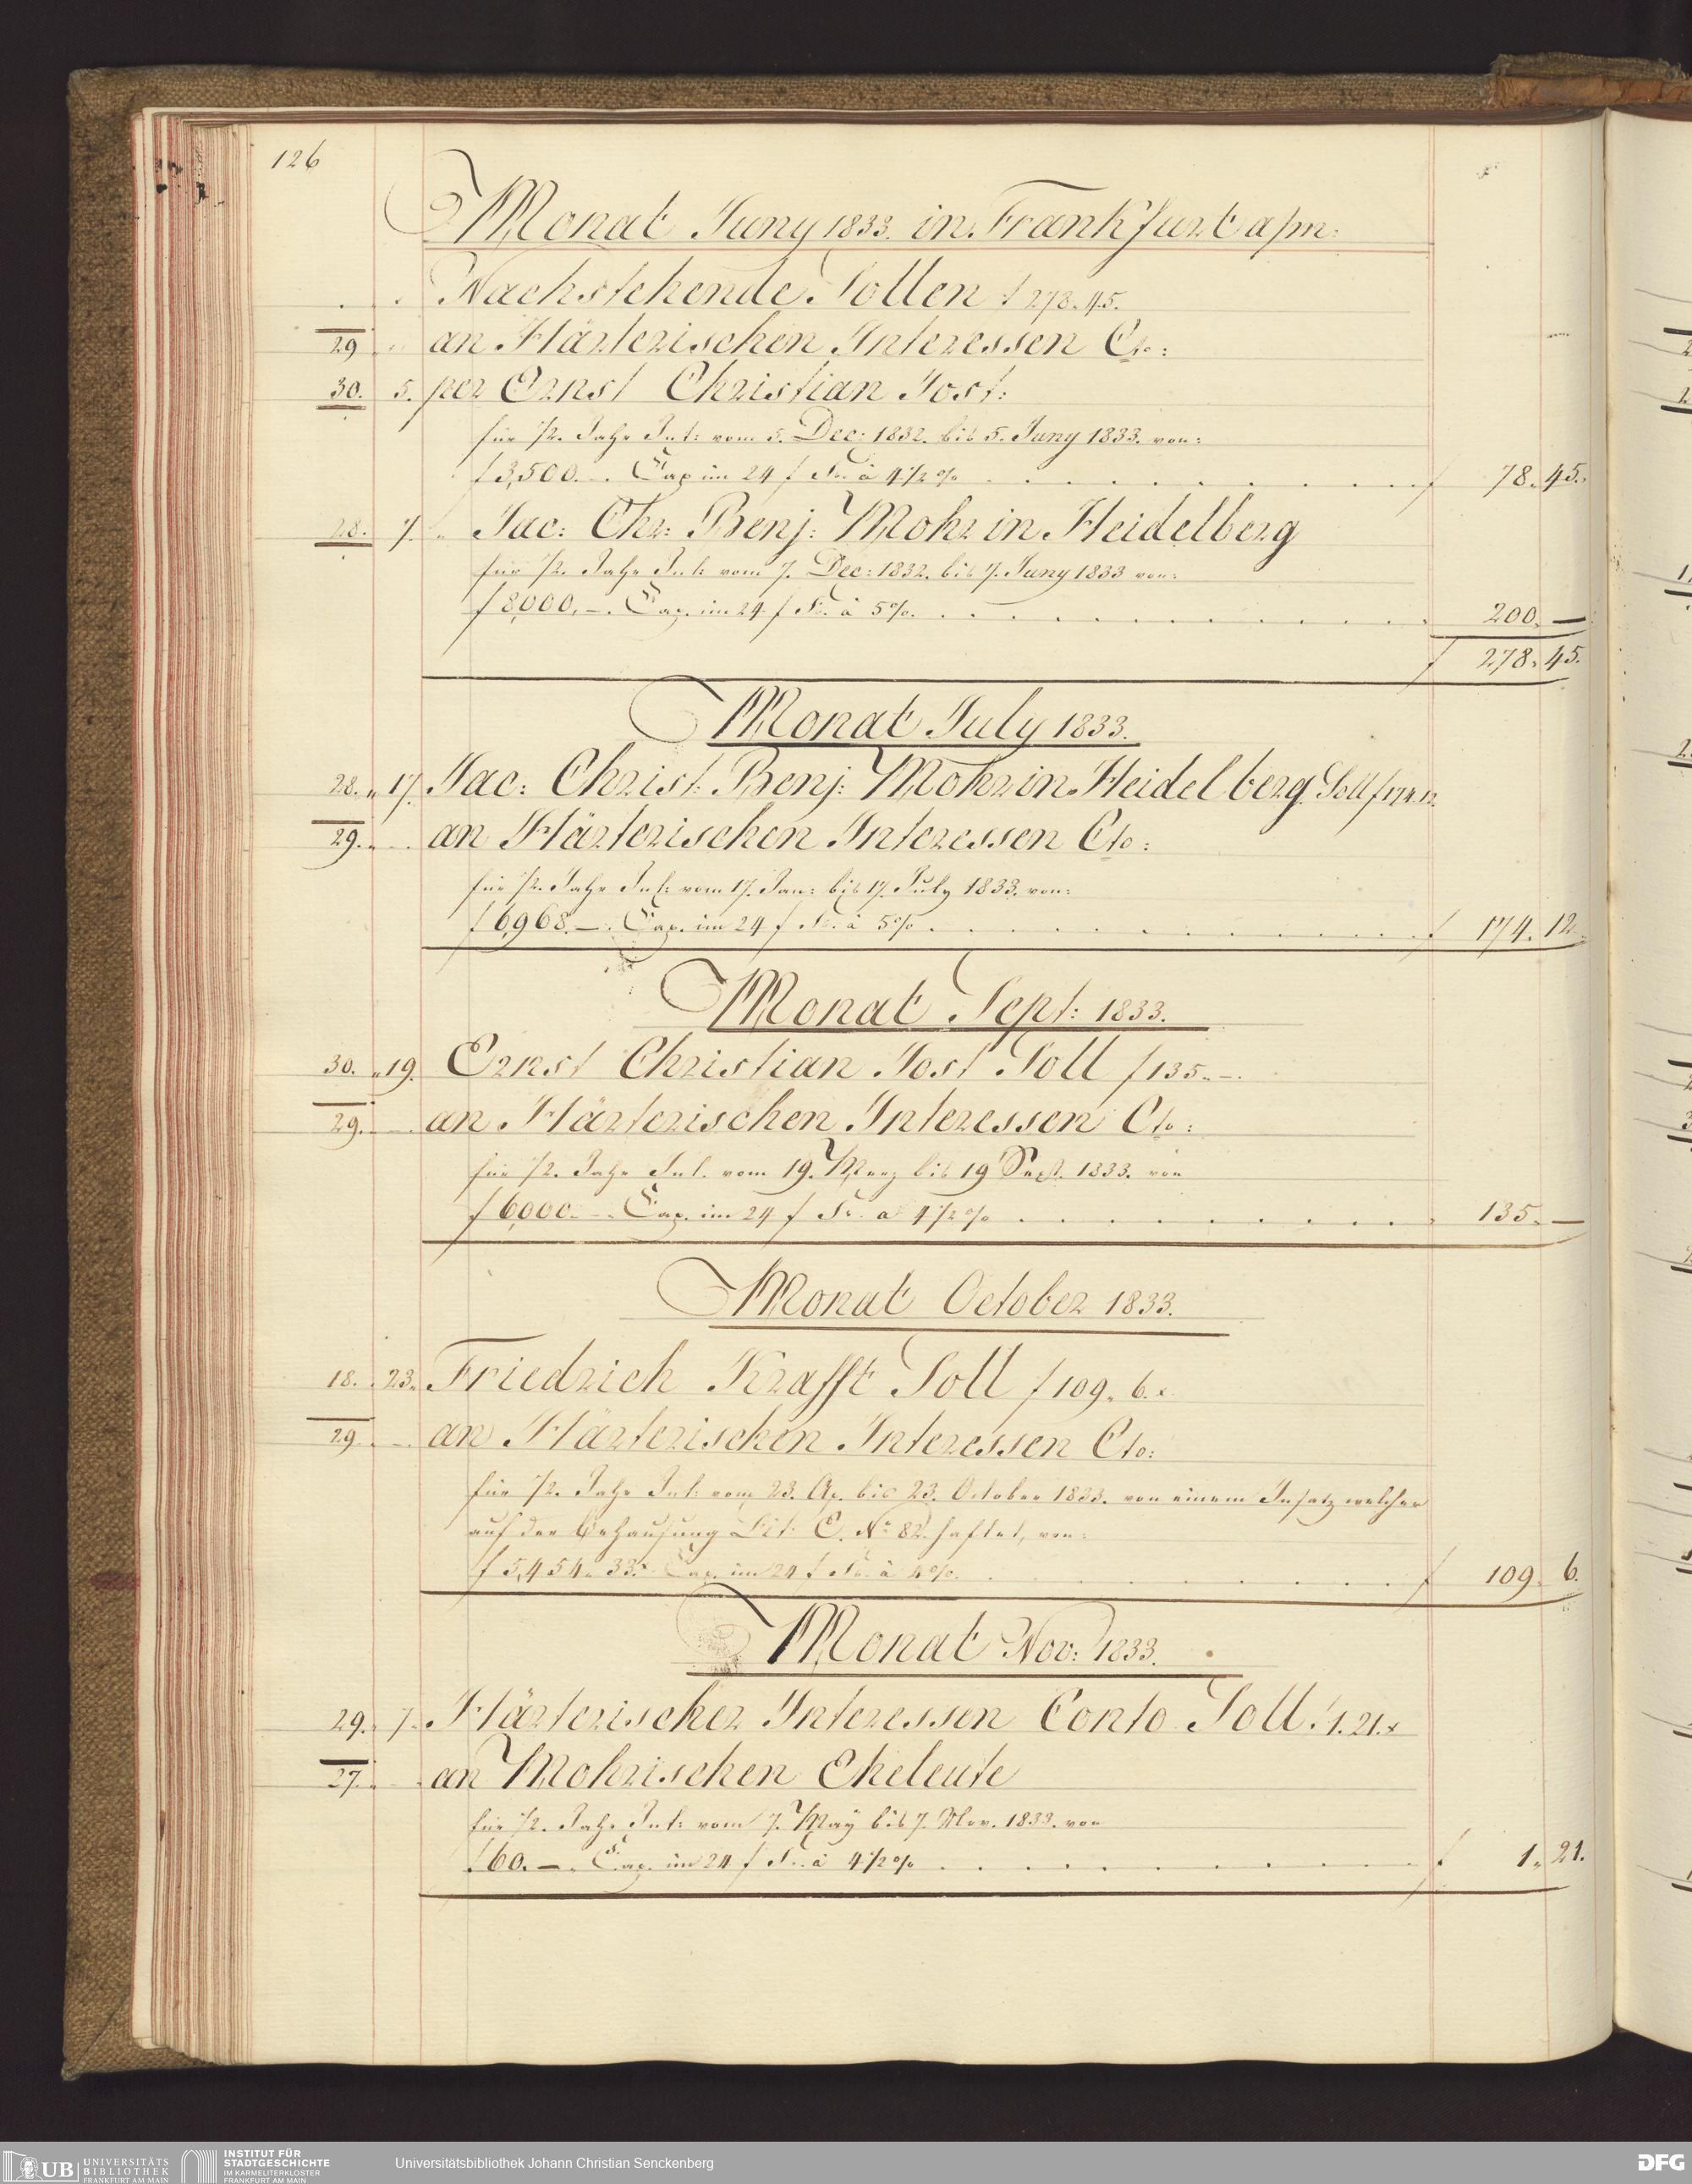 126
Monat Juny 1833. in Frankfurt a/m:
Nachstehende Sollen f 278. 45.
29 an Härterischen Interessen Cto:
30. 5. per Ernst Christian Jost:
für 1/2. Jahr Int: vom 5. Dec: 1832. bis 5. Juny 1833. von:
f 3,500. –. Cap im 24 f Fs. à 4 1/2 % f 78. 45.
28. 7. " Jac: Chr: Benj: Mohr in Heidelberg
für 1/2. Jahr Int: vom 7. Dec: 1832. bis 7. Juny 1833 von:
f 8,000. –. Cap. im 24 f Fs. à 5 %. 200. —
f 278. 45.
Monat July 1833.
28. " 17. Jac: Christ: Benj: Mohr in Heidelberg Soll f 174. 12.
29. an Härterischen Interessen Cto:
für 1/2. Jahr Int: vom 17. Jan: bis 17. July 1833. von:
f 6,968. –. Cap. im 24 f Fs. à 5 % f 174. 12.
Monat Sept: 1833.
30. " 19. Ernst Christian Jost Soll f 135. –.
29. an Härterischen Interessen Cto:
für 1/2. Jahr Int. vom 19. Merz bis 19 Sept. 1833. von
f 6,000. –. Cap. im 24 f Fs. à 4 1/2 % 135. —
Monat October 1833.
18. 23. Friedrich Krafft Soll f 109. 6. x
29. an Härterischen Interessen Cto:
für 1/2. Jahr Int: vom 23. Ap. bis 23. October 1833. von einem Insatz welcher
auf der Behausung Lit: C. No. 82. haftet, von:
f 5,454. 33. x Cap. im 24 f Fs. à 4 %. f 109. 6.
Monat Nov: 1833.
29. 7. Härterischer Interessen Conto Soll f 1. 21. x
27. an Mohrischen Eheleute
für 1/2. Jahr Int: vom 7. May bis 7. Nov. 1833. von
f 60. –. Cap. im 24 f Fs. à 4 1/2 % f 1. 21.
UB UNIVERSITÄTS
BIBLIOTHEK
FRANKFURT AM MAIN
INSTITUT FÜR
STADTGESCHICHTE
IM KARMELITERKLOSTER
FRANKFURT AM MAIN
Universitätsbibliothek Johann Christian Senckenberg
DFG